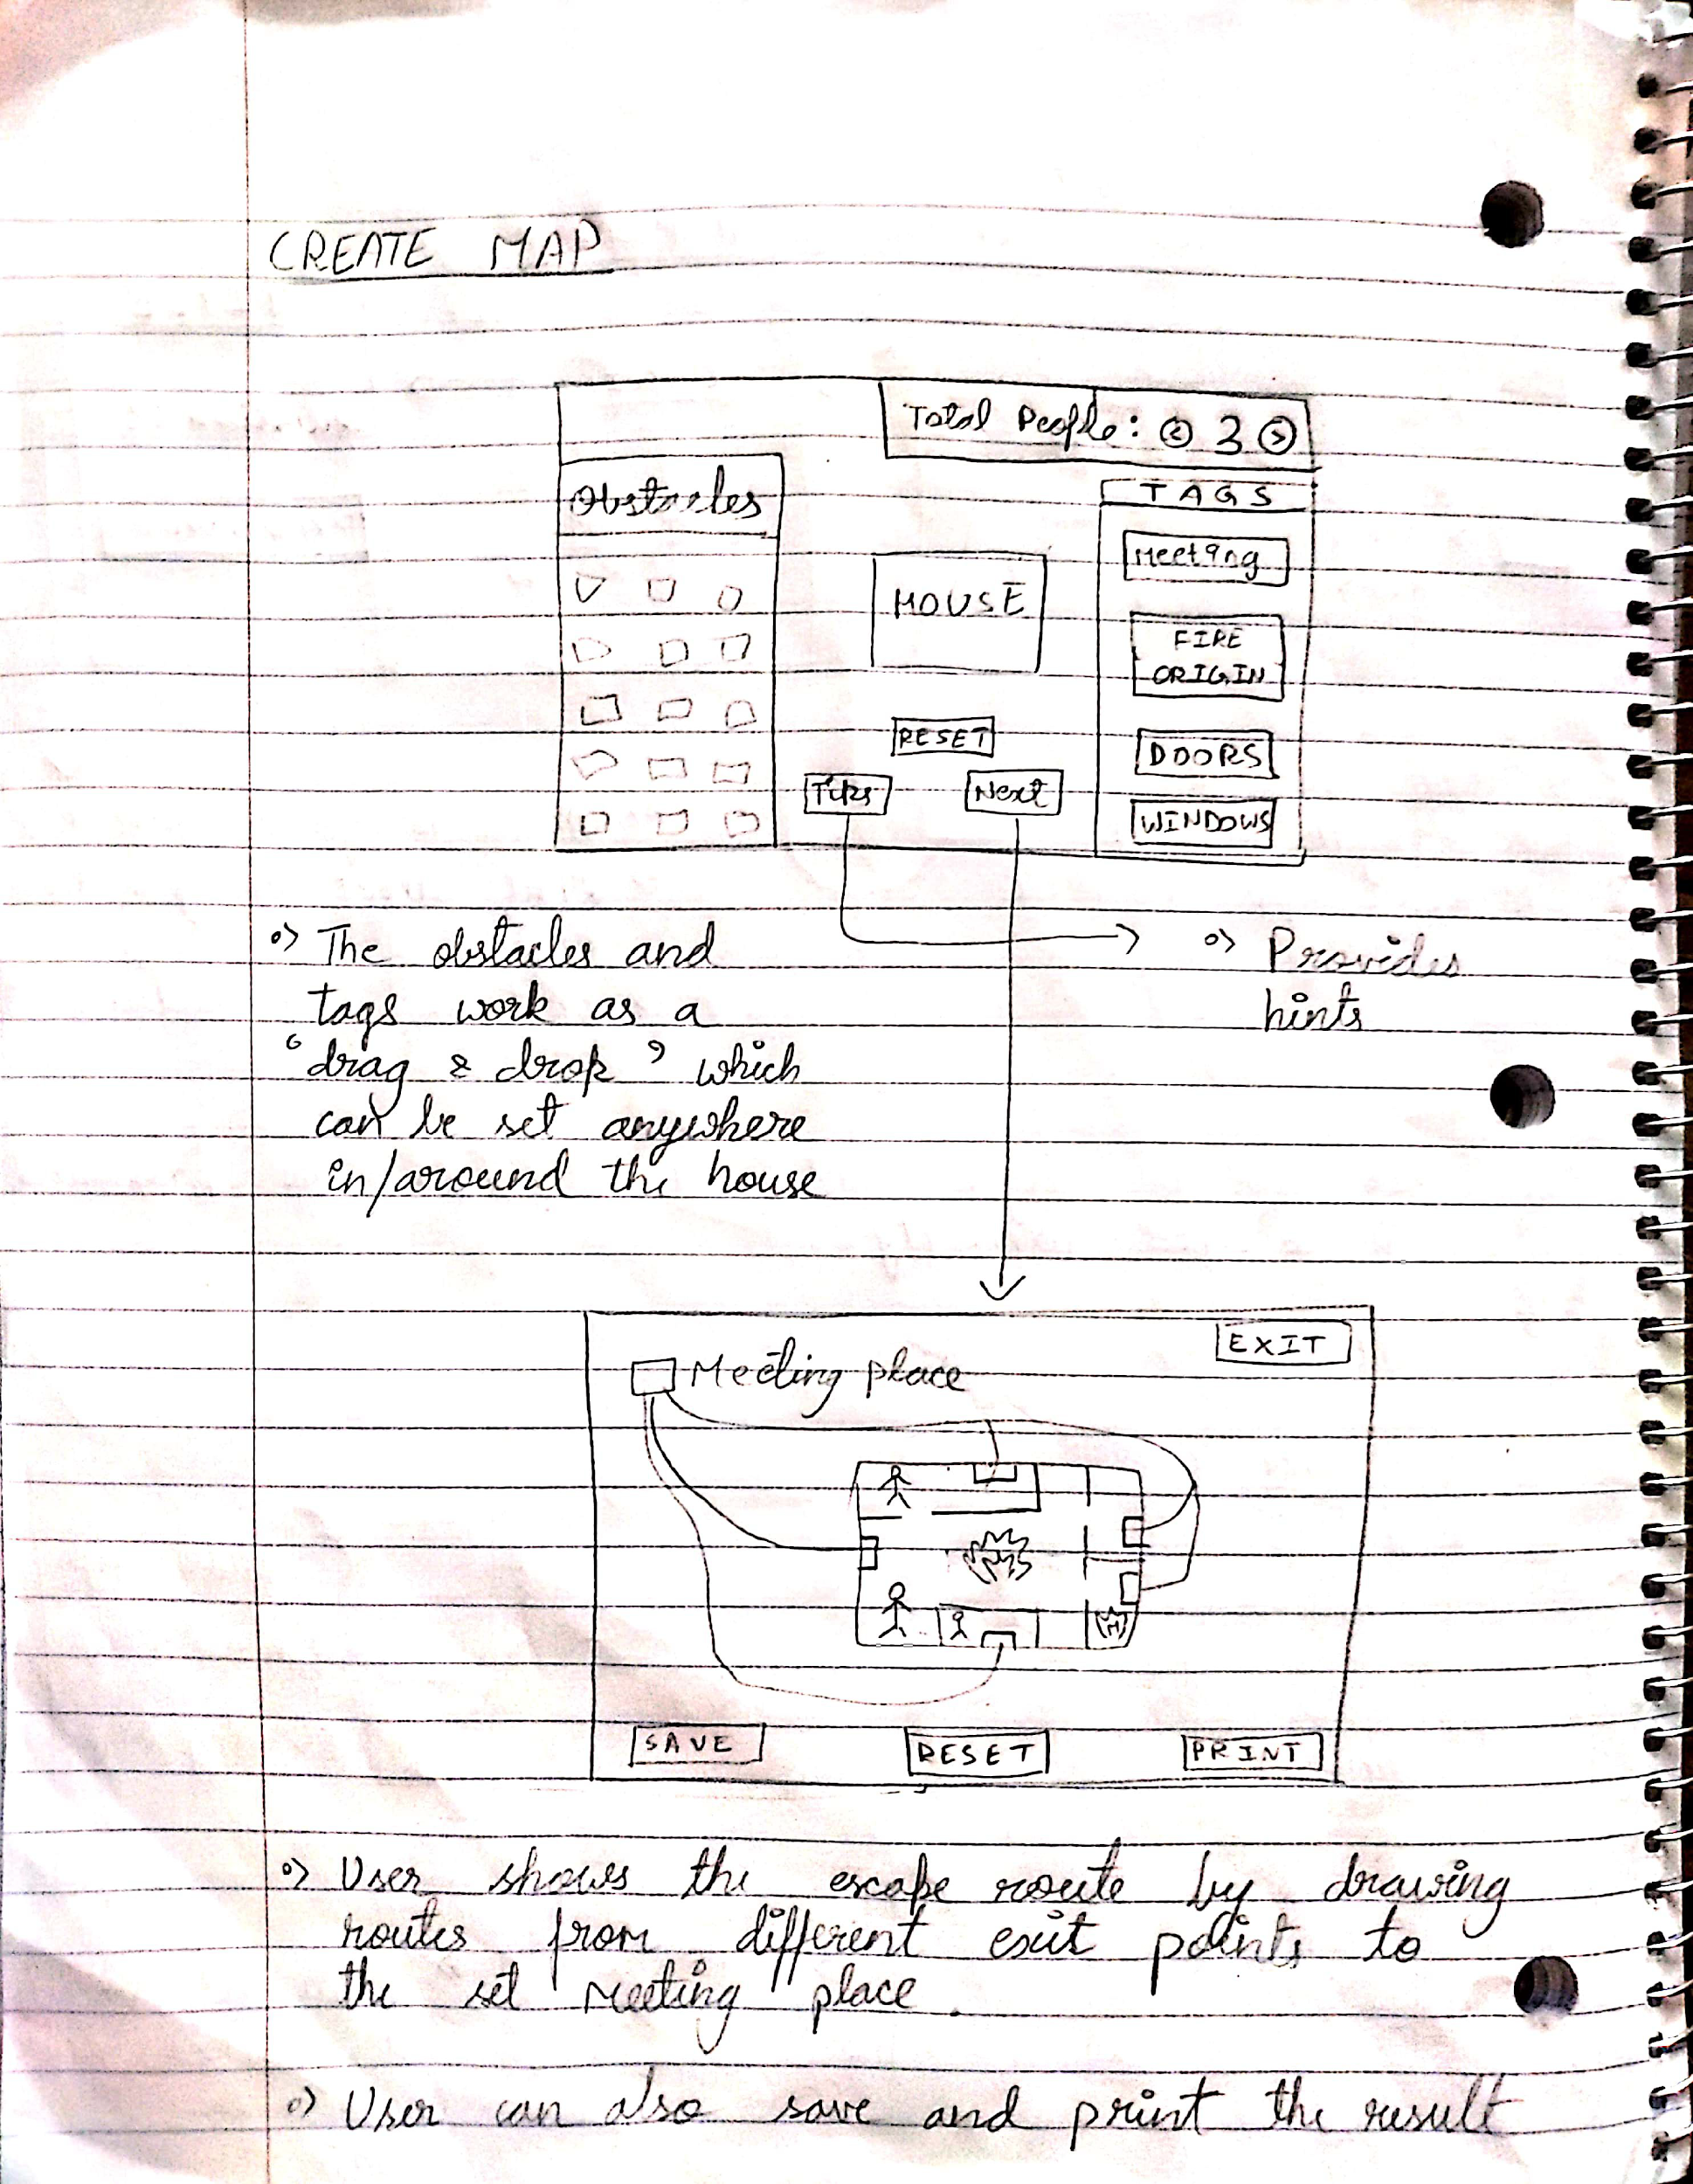 CREATE MAP
Total People: < 3 >
Obstacles
TAGS
Meeting
HOUSE
FIRE
ORIGIN
RESET
DOORS
Tips
Next
WINDOWS
°> The obstacles and
tags work as a
‘drag & drop’ which
can be set anywhere
in/around the house
°> Provides
hints
EXIT
Meeting place
SAVE
RESET
PRINT
°> User shows the escape route by drawing
routes from different exit points to
the set meeting place.
°> User can also save and print the result